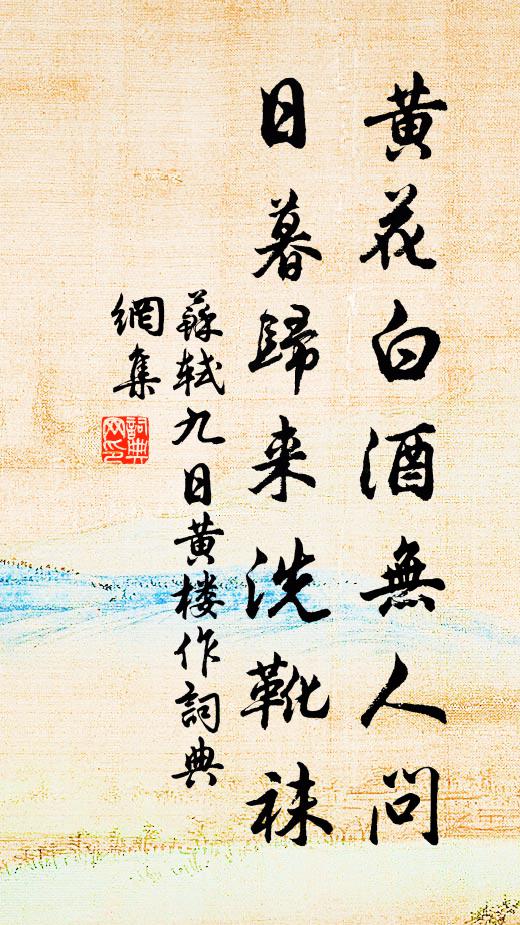 黄花白酒無人問
日暮歸来洗靴袜
蘇軾九日黄楼作詞典
網集
詞典網印